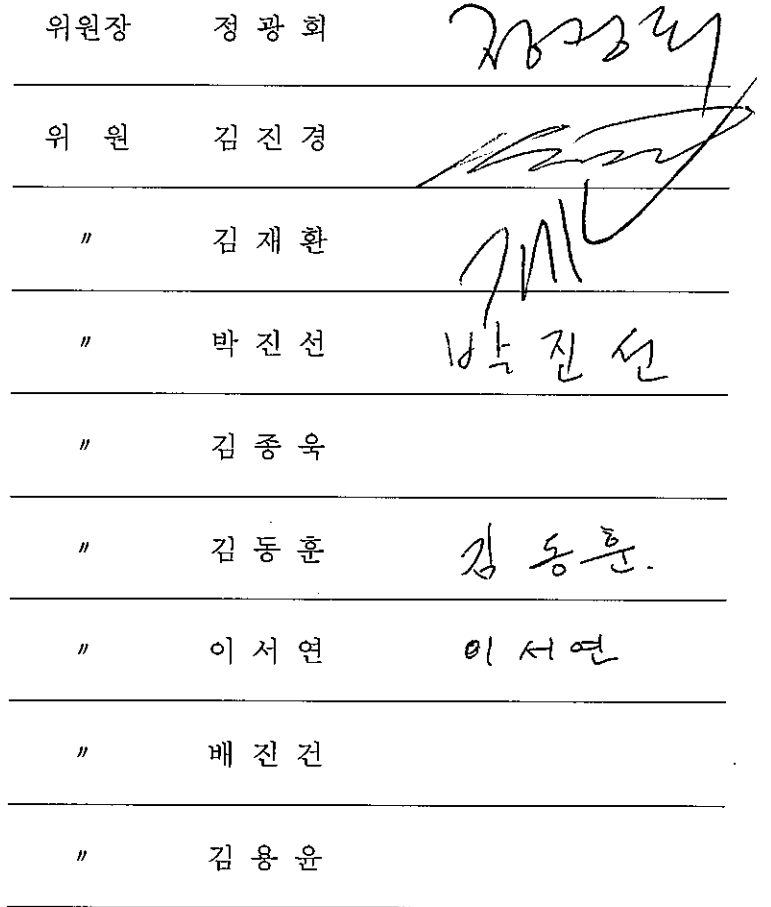 위원장 정 광 회 정광회
위 원 김 진 경
〃 김 재 환
〃 박 진 선 박 진 선
〃 김 종 욱
〃 김 동 훈 김 동 훈.
〃 이 서 연 이 서 연
〃 배 진 건
〃 김 용 윤